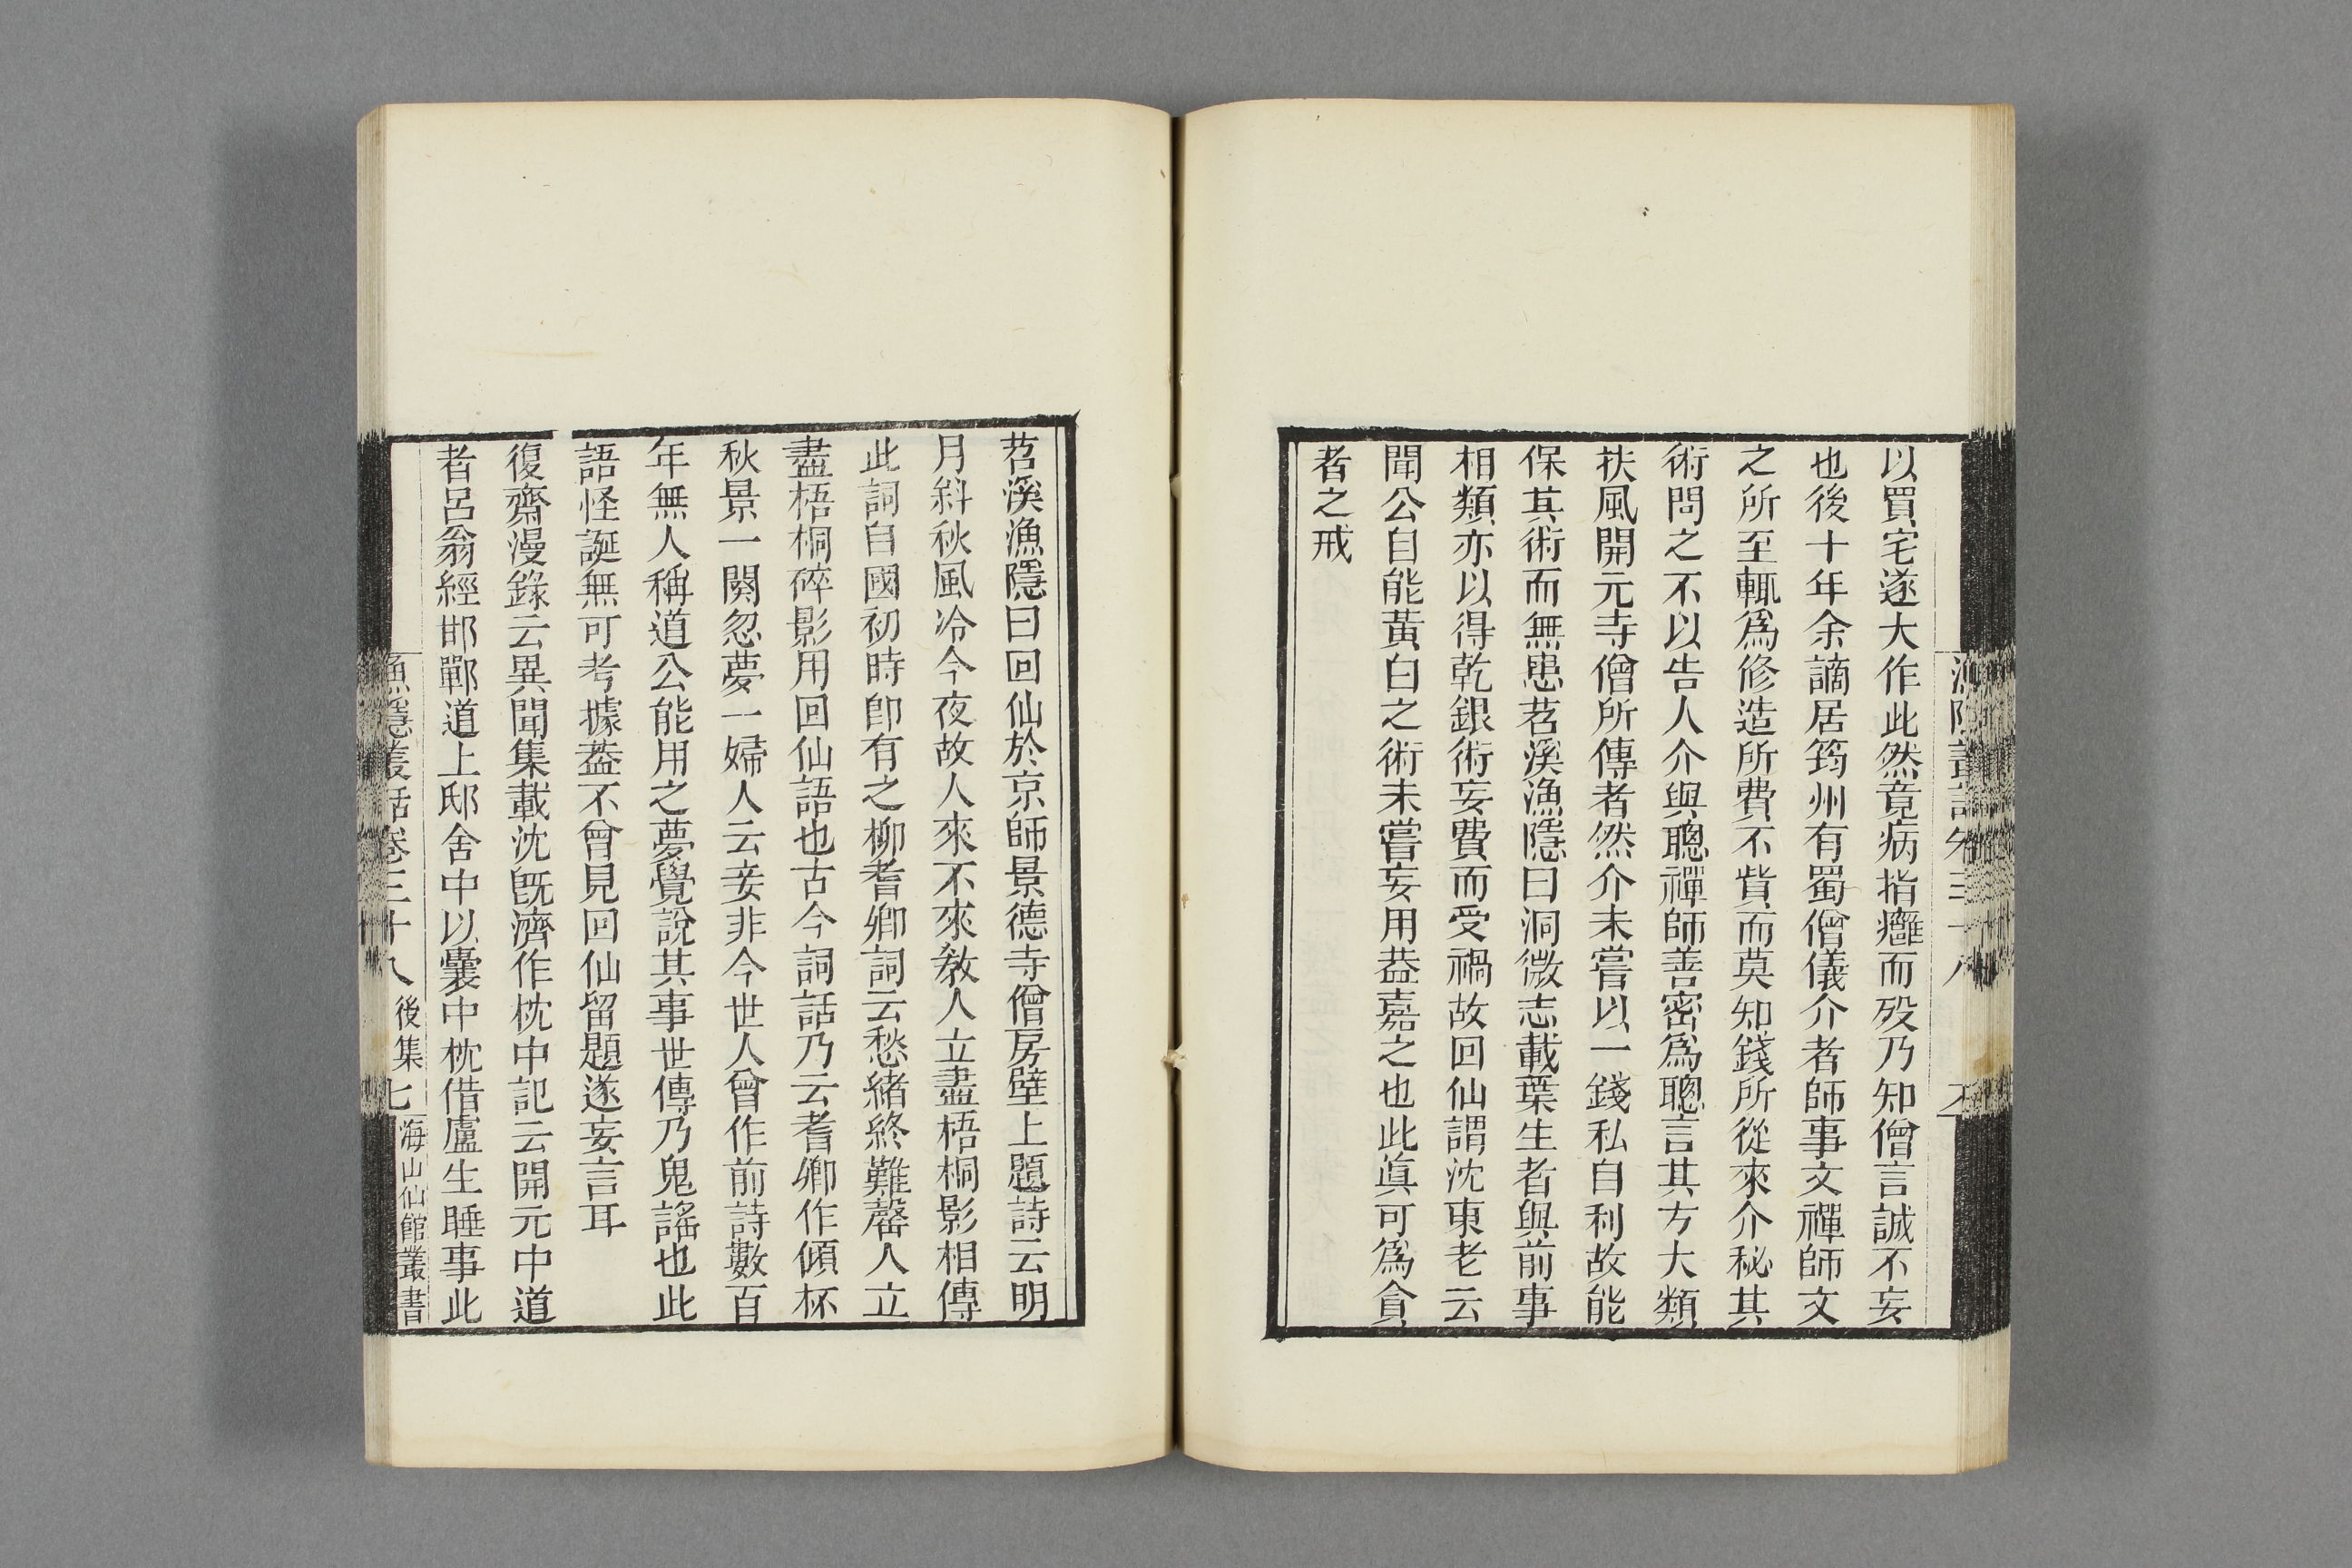 以買宅遂大作此然竟病指癰而殁乃知僧言誠不妄
也後十年余謫居筠州有蜀僧儀介者師事文禪師文
之所至輒爲修造所費不貲而莫知錢所從來介秘其
術問之不以告人介與聰禪師善密爲聰言其方大類
扶風開元寺僧所傳者然介未嘗以一錢私自利故能
保其術而無患苕溪漁隱曰洞微志載葉生者與前事
相類亦以得乾銀術妄費而受禍故回仙謂沈東老云
聞公自能黃白之術未嘗妄用葢嘉之也此眞可爲貪
者之戒
苕溪漁隱曰回仙於京師景德寺僧房壁上題詩云明
月斜秋風冷今夜故人來不來敎人立盡梧桐影相傳
此詞自國初時卽有之柳耆卿詞云愁緒終難罄人立
盡梧桐碎影用回仙語也古今詞話乃云耆卿作傾杯
秋景一闋忽夢一婦人云妾非今世人曾作前詩數百
年無人稱道公能用之夢覺說其事世傳乃鬼謠也此
語怪誕無可考據葢不曾見回仙留題遂妄言耳
復齋漫錄云異聞集載沈旣濟作枕中記云開元中道
者呂翁經邯鄲道上邸舍中以囊中枕借盧生睡事此
漁隱叢話卷三十八 後集 七 海山仙館叢書